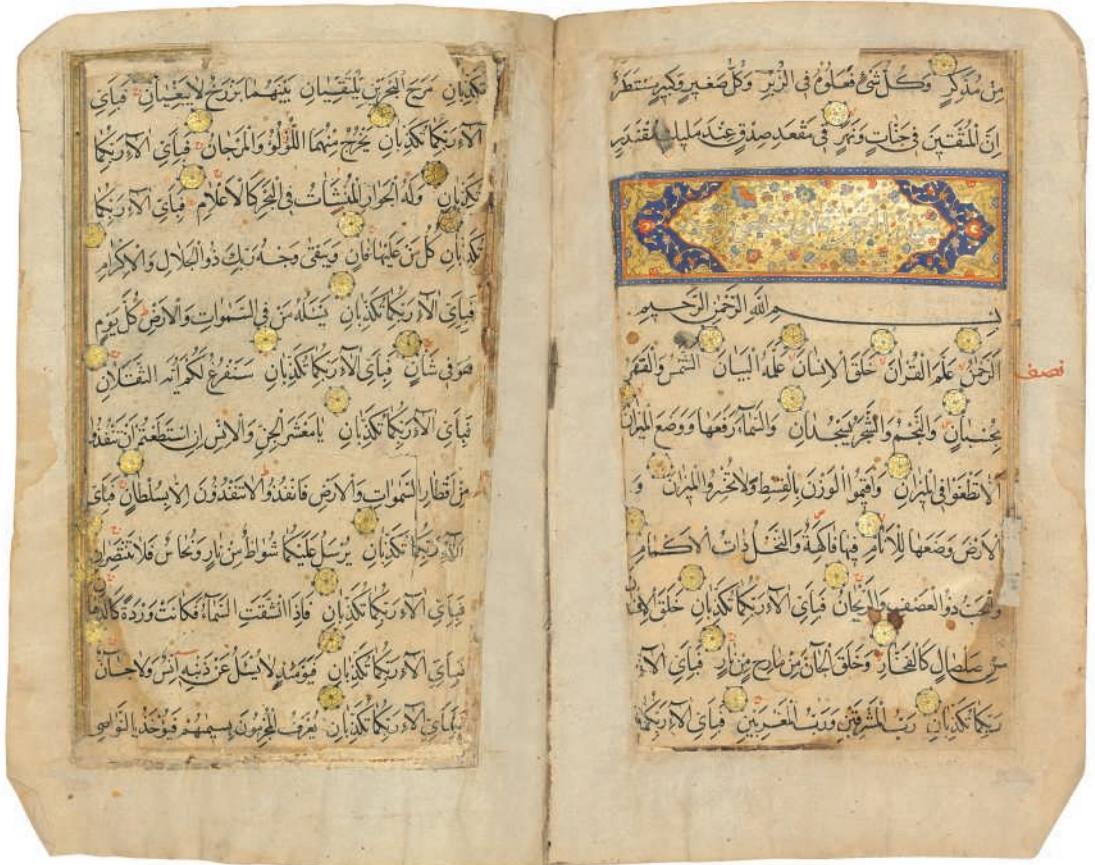 مِنْ مُدَّكِرٍ وَكُلُّ شَيْءٍ فَعَلُوهُ فِي الزُّبُرِ وَكُلُّ صَغِيرٍ وَكَبِيرٍ مُسْتَطَرٌ
اِنَّ الْمُتَّقِينَ فِي جَنَّاتٍ وَنَهَرٍ فِي مَقْعَدِ صِدْقٍ عِنْدَ مَلِيكٍ مُقْتَدِرٍ
بِسْمِ اللهِ الرَّحْمٰنِ الرَّحِيمِ
اَلرَّحْمٰنُ عَلَّمَ الْقُرْاٰنَ خَلَقَ الْاِنْسَانَ عَلَّمَهُ الْبَيَانَ اَلشَّمْسُ وَالْقَمَرُ
نصف
بِحُسْبَانٍ وَالنَّجْمُ وَالشَّجَرُ يَسْجُدَانِ وَالسَّمَآءَ رَفَعَهَا وَوَضَعَ الْمِيزَانَ
اَلَّا تَطْغَوْا فِي الْمِيزَانِ وَاَقِيمُوا الْوَزْنَ بِالْقِسْطِ وَلَا تُخْسِرُوا الْمِيزَانَ وَ
الْاَرْضَ وَضَعَهَا لِلْاَنَامِ فِيهَا فَاكِهَةٌ وَالنَّخْلُ ذَاتُ الْاَكْمَامِ
وَالْحَبُّ ذُو الْعَصْفِ وَالرَّيْحَانُ فَبِاَيِّ اٰلَاءِ رَبِّكُمَا تُكَذِّبَانِ خَلَقَ الْاِنْسَانَ
مِنْ صَلْصَالٍ كَالْفَخَّارِ وَخَلَقَ الْجَانَّ مِنْ مَارِجٍ مِنْ نَارٍ فَبِاَيِّ اٰلَاءِ
رَبِّكُمَا تُكَذِّبَانِ رَبُّ الْمَشْرِقَيْنِ وَرَبُّ الْمَغْرِبَيْنِ فَبِاَيِّ اٰلَاءِ رَبِّكُمَا
تُكَذِّبَانِ مَرَجَ الْبَحْرَيْنِ يَلْتَقِيَانِ بَيْنَهُمَا بَرْزَخٌ لَا يَبْغِيَانِ فَبِاَيِّ
اٰلَاءِ رَبِّكُمَا تُكَذِّبَانِ يَخْرُجُ مِنْهُمَا اللُّؤْلُؤُ وَالْمَرْجَانُ فَبِاَيِّ اٰلَاءِ رَبِّكُمَا
تُكَذِّبَانِ وَلَهُ الْجَوَارِ الْمُنْشَاٰتُ فِي الْبَحْرِ كَالْاَعْلَامِ فَبِاَيِّ اٰلَاءِ رَبِّكُمَا
تُكَذِّبَانِ كُلُّ مَنْ عَلَيْهَا فَانٍ وَيَبْقٰى وَجْهُ رَبِّكَ ذُو الْجَلَالِ وَالْاِكْرَامِ
فَبِاَيِّ اٰلَاءِ رَبِّكُمَا تُكَذِّبَانِ يَسْـَٔلُهُ مَنْ فِي السَّمٰوَاتِ وَالْاَرْضِ كُلَّ يَوْمٍ
هُوَ فِي شَاْنٍ فَبِاَيِّ اٰلَاءِ رَبِّكُمَا تُكَذِّبَانِ سَنَفْرُغُ لَكُمْ اَيُّهَ الثَّقَلَانِ
فَبِاَيِّ اٰلَاءِ رَبِّكُمَا تُكَذِّبَانِ يَا مَعْشَرَ الْجِنِّ وَالْاِنْسِ اِنِ اسْتَطَعْتُمْ اَنْ تَنْفُذُوا
مِنْ اَقْطَارِ السَّمٰوَاتِ وَالْاَرْضِ فَانْفُذُوا لَا تَنْفُذُونَ اِلَّا بِسُلْطَانٍ فَبِاَيِّ
اٰلَاءِ رَبِّكُمَا تُكَذِّبَانِ يُرْسَلُ عَلَيْكُمَا شُوَاظٌ مِنْ نَارٍ وَنُحَاسٌ فَلَا تَنْتَصِرَانِ
فَبِاَيِّ اٰلَاءِ رَبِّكُمَا تُكَذِّبَانِ فَاِذَا انْشَقَّتِ السَّمَآءُ فَكَانَتْ وَرْدَةً كَالدِّهَانِ
فَبِاَيِّ اٰلَاءِ رَبِّكُمَا تُكَذِّبَانِ فَيَوْمَئِذٍ لَا يُسْـَٔلُ عَنْ ذَنْبِهِ اِنْسٌ وَلَا جَانٌّ
فَبِاَيِّ اٰلَاءِ رَبِّكُمَا تُكَذِّبَانِ يُعْرَفُ الْمُجْرِمُونَ بِسِيمٰهُمْ فَيُؤْخَذُ بِالنَّوَاصِي